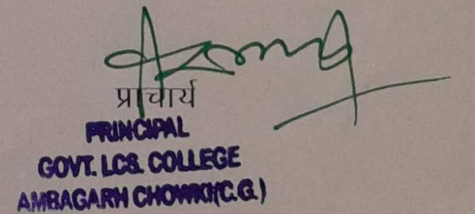 प्राचार्य
PRINCIPAL
GOVT. LCS. COLLEGE
AMBAGARH CHOWKI(C.G.)